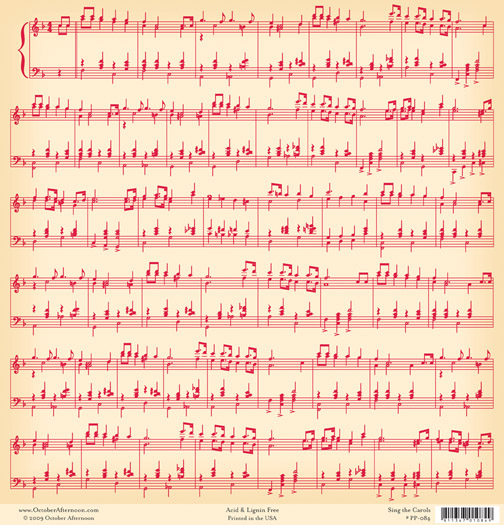 www.OctoberAfternoon.com
© 2009 October Afternoon
Acid & Lignin Free
Printed in the USA
Sing the Carols
# PP-084